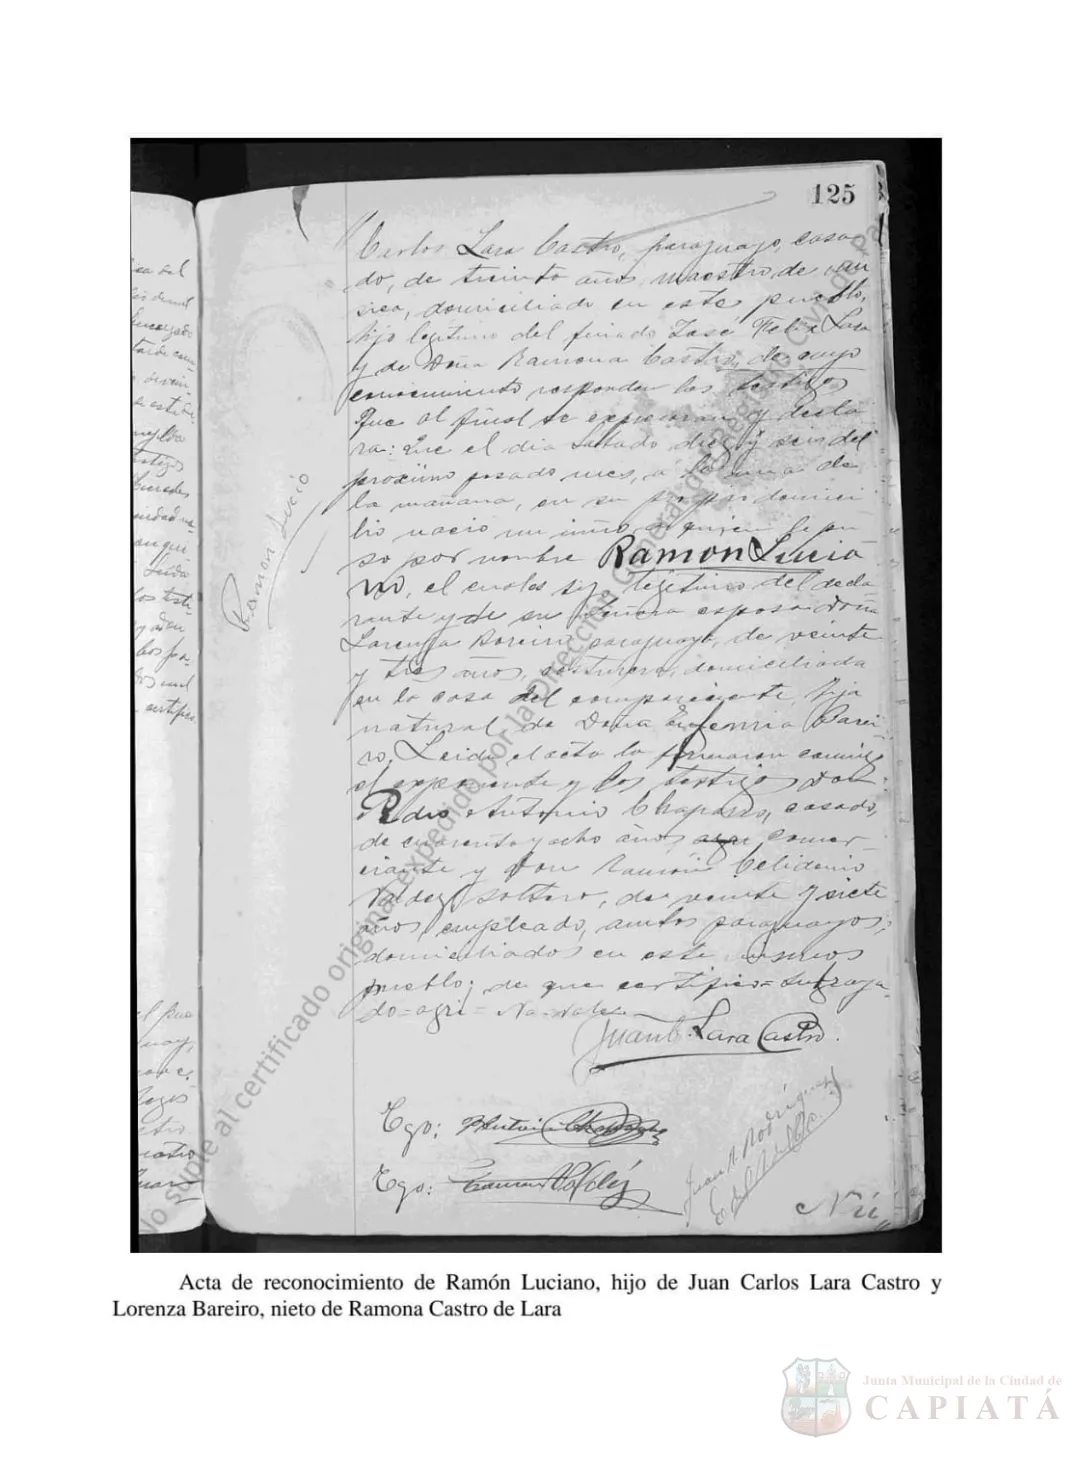 125
Carlos Lara Castro, paraguayo, casa
do, de treinta años, maestro de mú
sica, domiciliado en este pueblo,
hijo lejítimo del finado José Felix Lara
y de Doña Ramona Castro, de cuyo
conocimiento responden los testigos
que al final se expresaran y decla
ra: Que el dia Sabado diez y seis del
proximo pasado mes, a la una de
la mañana, en su propio domici
lio nació un niño a quien se pu
so por nombre Ramon Lucia
no, el cual es hijo lejítimo del decla
rante y de su Señora esposa Doña
Lorenza Bareiro, paraguaya, de veinte
y tres años, costurera, domiciliada
en la casa del compareciente, hija
natural de Doña Eufemia Barei
ro. Leida el acta la firmaron conmigo
el exponente y los testigos Don
Pedro Antonio Chaparro, casado,
de cuarenta y ocho años agri comer-
ciante y Don Ramón Celidonio
Valdez soltero, de veinte y siete
años, empleado, ambos paraguayos,
domiciliados en este mismo
pueblo; de que certifico = Subraya
do = agri = No vale
Juan C. Lara Castro.
Tgo:
Tgo: Ramon Valdéz
Juan A. Rodríguez
Ramon Lucio
No suple al certificado original expedido por la Dirección General del Registro Civil de Pa
Acta de reconocimiento de Ramón Luciano, hijo de Juan Carlos Lara Castro y
Lorenza Bareiro, nieto de Ramona Castro de Lara
Junta Municipal de la Ciudad de
CAPIATÁ